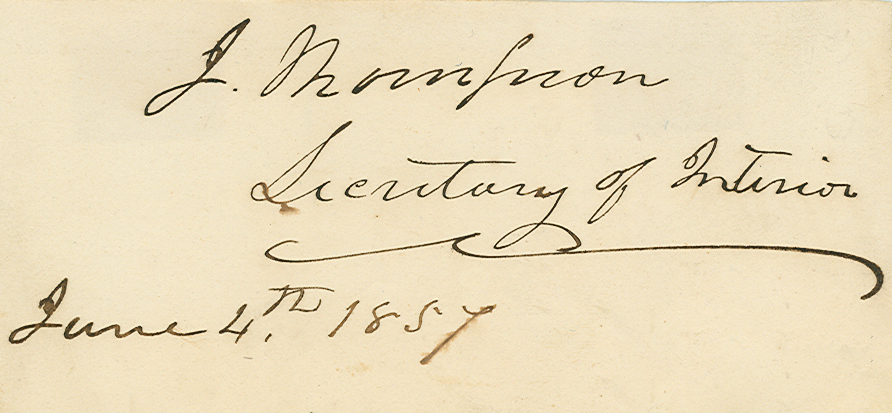 J. Thompson
Secretary of Interior
June 4.th 1857